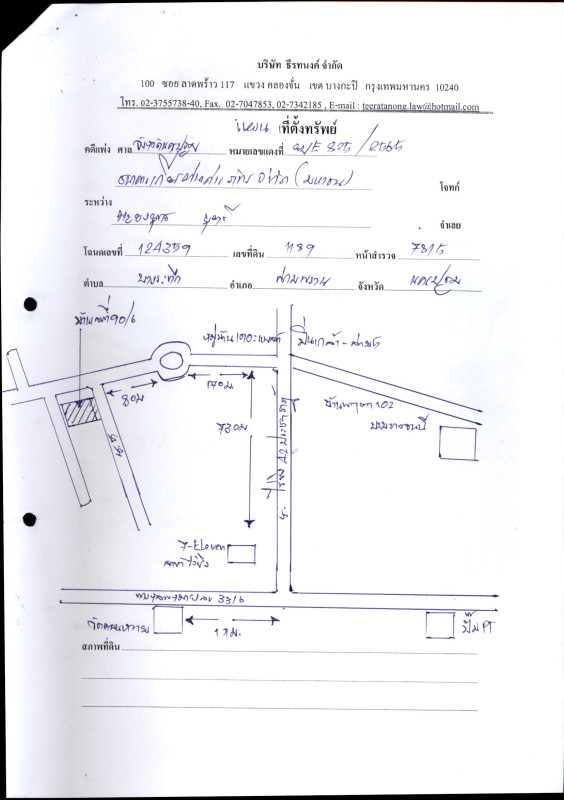 บริษัท ธีรทนงค์ จำกัด
100 ซอย ลาดพร้าว 117 แขวง คลองจั่น เขต บางกะปิ กรุงเทพมหานคร 10240
โทร. 02-3755738-40, Fax. 02-7047853, 02-7342185 , E-mail : teeratanong.law@hotmail.com
ที่ตั้งทรัพย์
คดีแพ่ง ศาล จังหวัดนครปฐม หมายเลขแดงที่ ผบE 825 / 2565
โจทก์
ระหว่าง
จำเลย
โฉนดเลขที่ 124359 เลขที่ดิน 1189 หน้าสำรวจ 7815
ตำบล บางระทึก อำเภอ สามพราน จังหวัด นครปฐม
บ้านเลขที่ 90/6
หมู่บ้านเดอะแพลนท์ ปิ่นเกล้า - สาย 5
80 ม
170 ม
730 ม
บ้านพฤกษา 102
บรมราชชนนี
7-Eleven
ถนนเพชรเกษม 3316
วัดดอนหวาย
1 กม.
ปั๊ม PT
สภาพที่ดิน